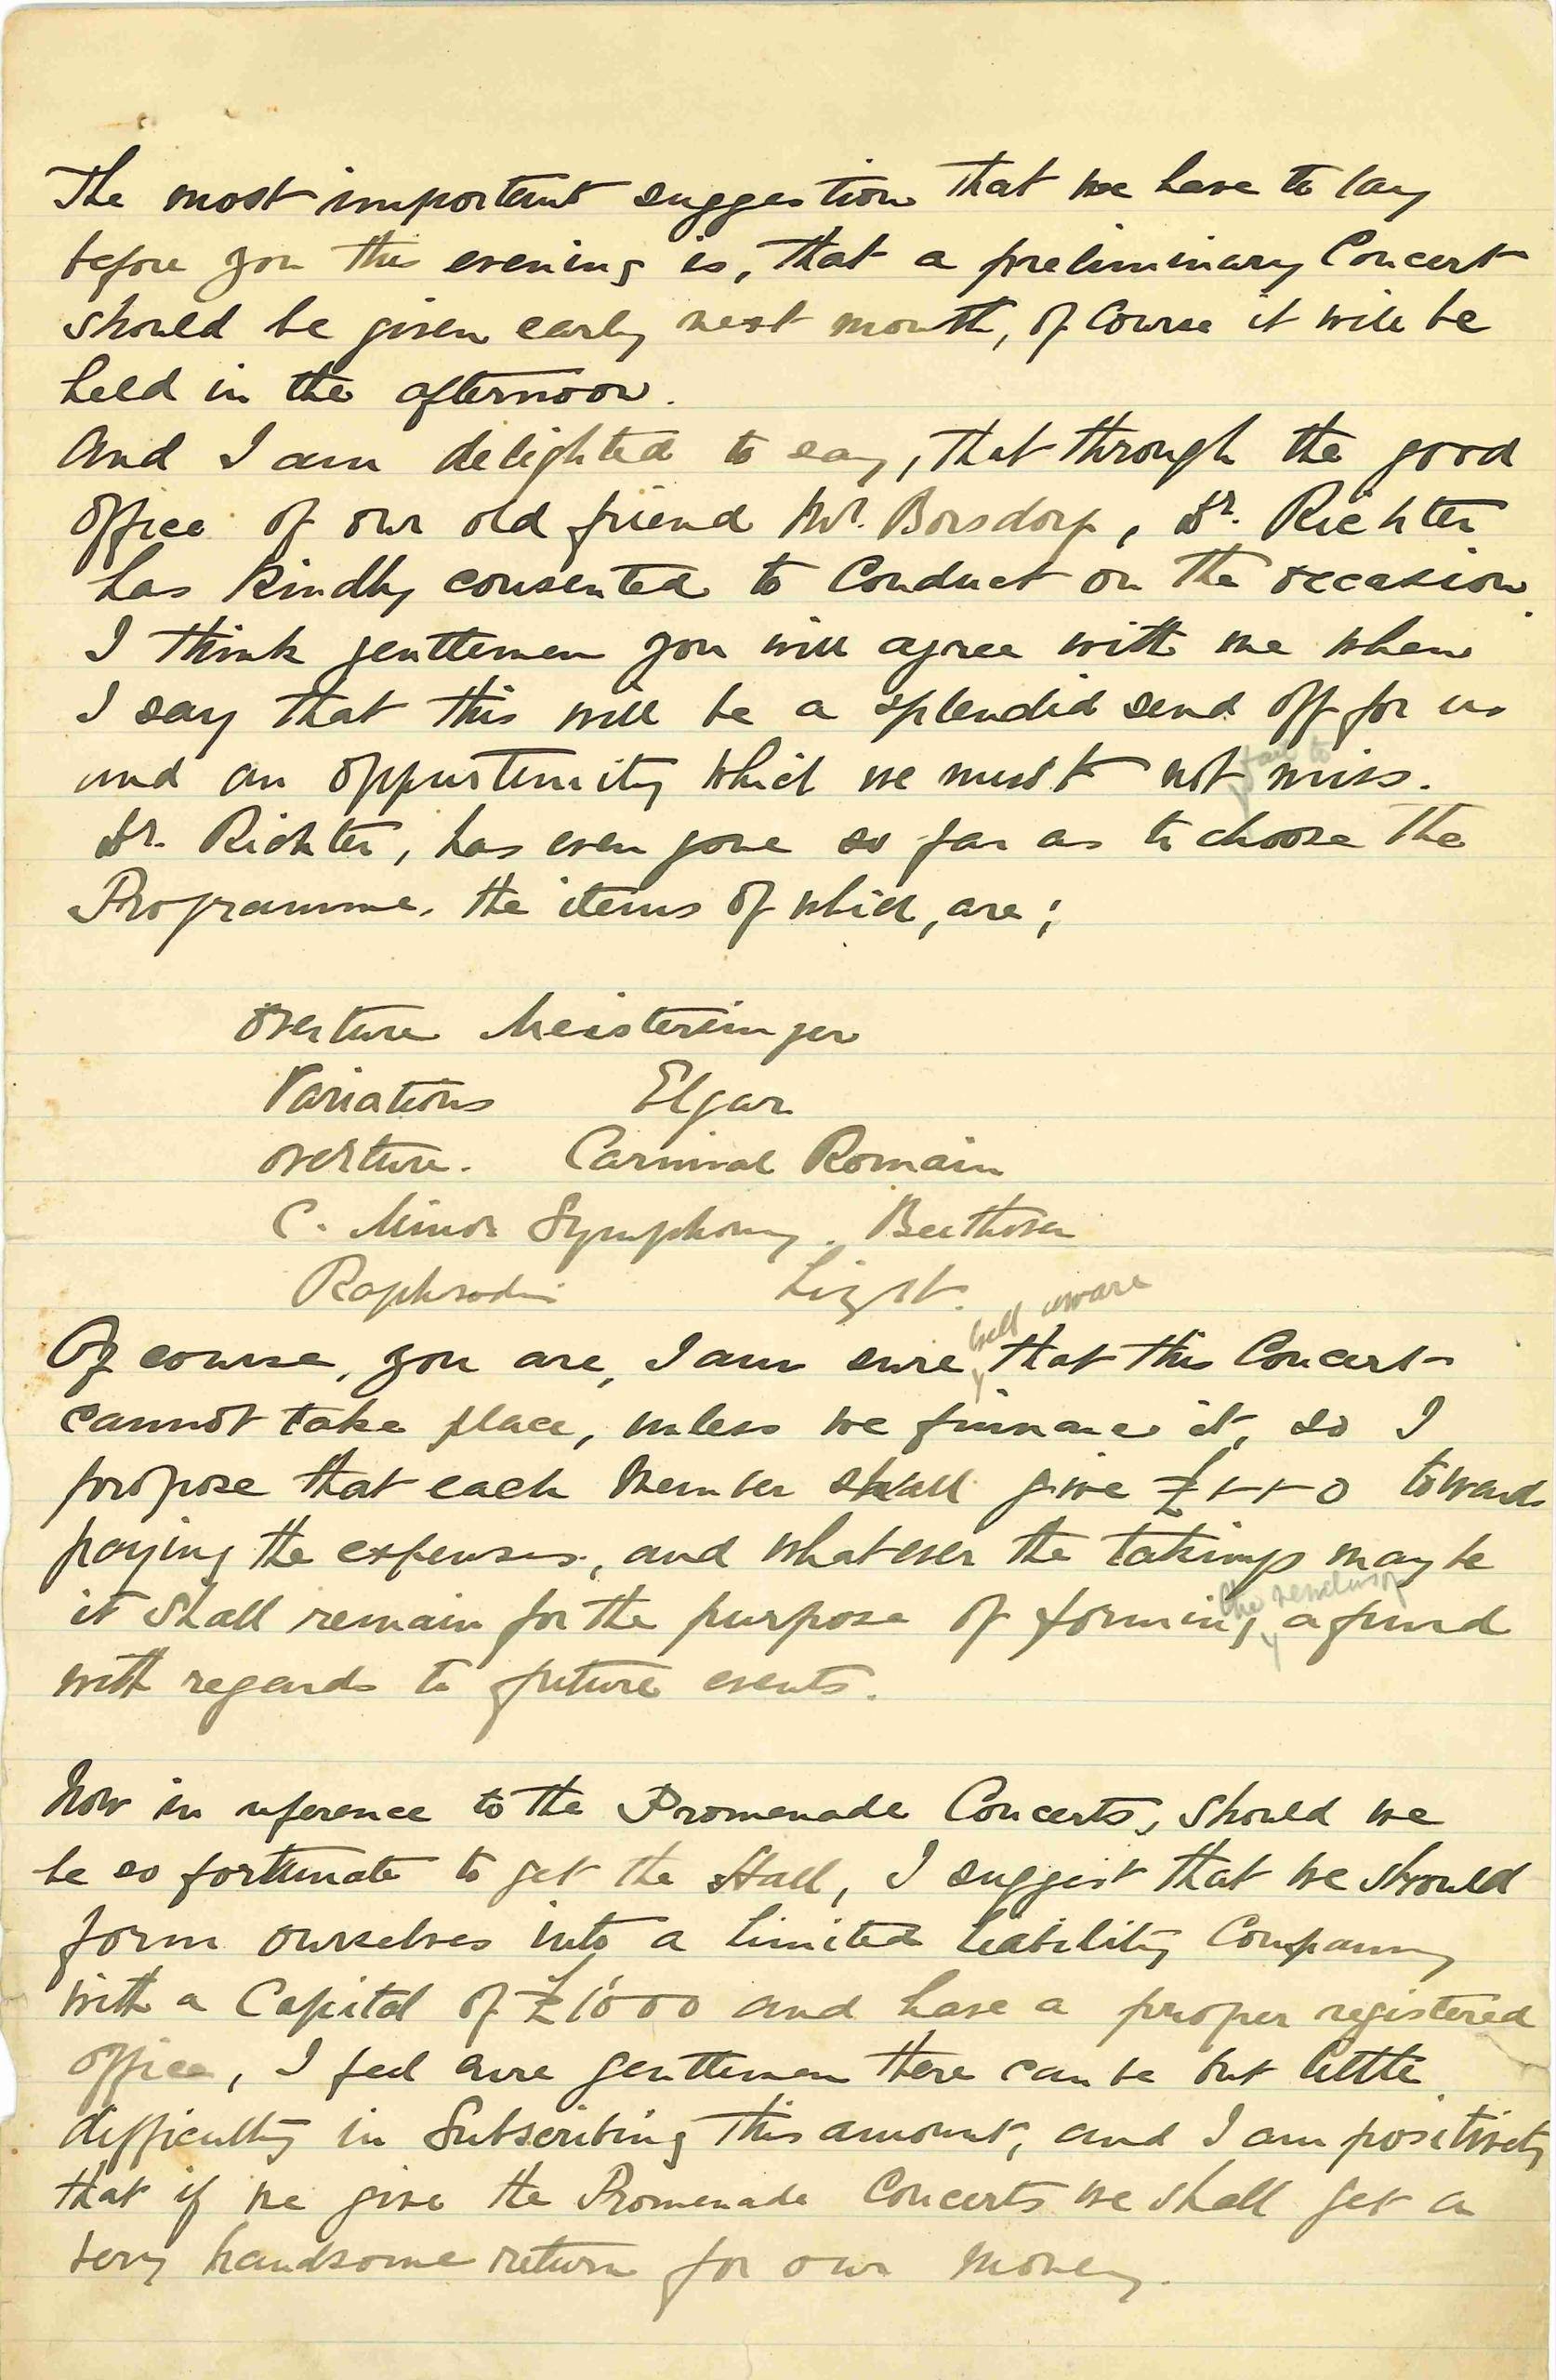 The most important suggestion that we have to lay
before you this evening is, that a preliminary Concert
should be given early next month, of course it will be
held in the afternoon.
And I am delighted to say, that through the good
office of our old friend Mr. Borsdorf, Dr. Richter
has kindly consented to Conduct on the occasion.
I think gentlemen you will agree with me when
I say that this will be a splendid send off for us
and an oppurtunity which we must not miss.
Dr. Richter, has even gone so far as to choose the
Programme, the items of which, are;
Overture Meistersinger
Variations Elgar
Overture. Carnival Romain
C. Minor Symphony. Beethoven
Raphsodie Lizst.
well aware
Of course, you are, I am sure, that this Concert
cannot take place, unless we finance it, so I
propose that each Member shall give £ towards
paying the expenses, and whatever the takings may be
it shall remain for the purpose of forming a fund
with regards to future events.
Now in reference to the Promenade Concerts, should we
be so fortunate to get the Hall, I suggest that we should
form ourselves into a limited liability Company
with a Capital of £1000 and have a proper registered
office, I feel sure gentlemen there can be but little
difficulty in Subscribing this amount, and I am positively
that if we give the Promenade Concerts we shall get a
very handsome return for our money.